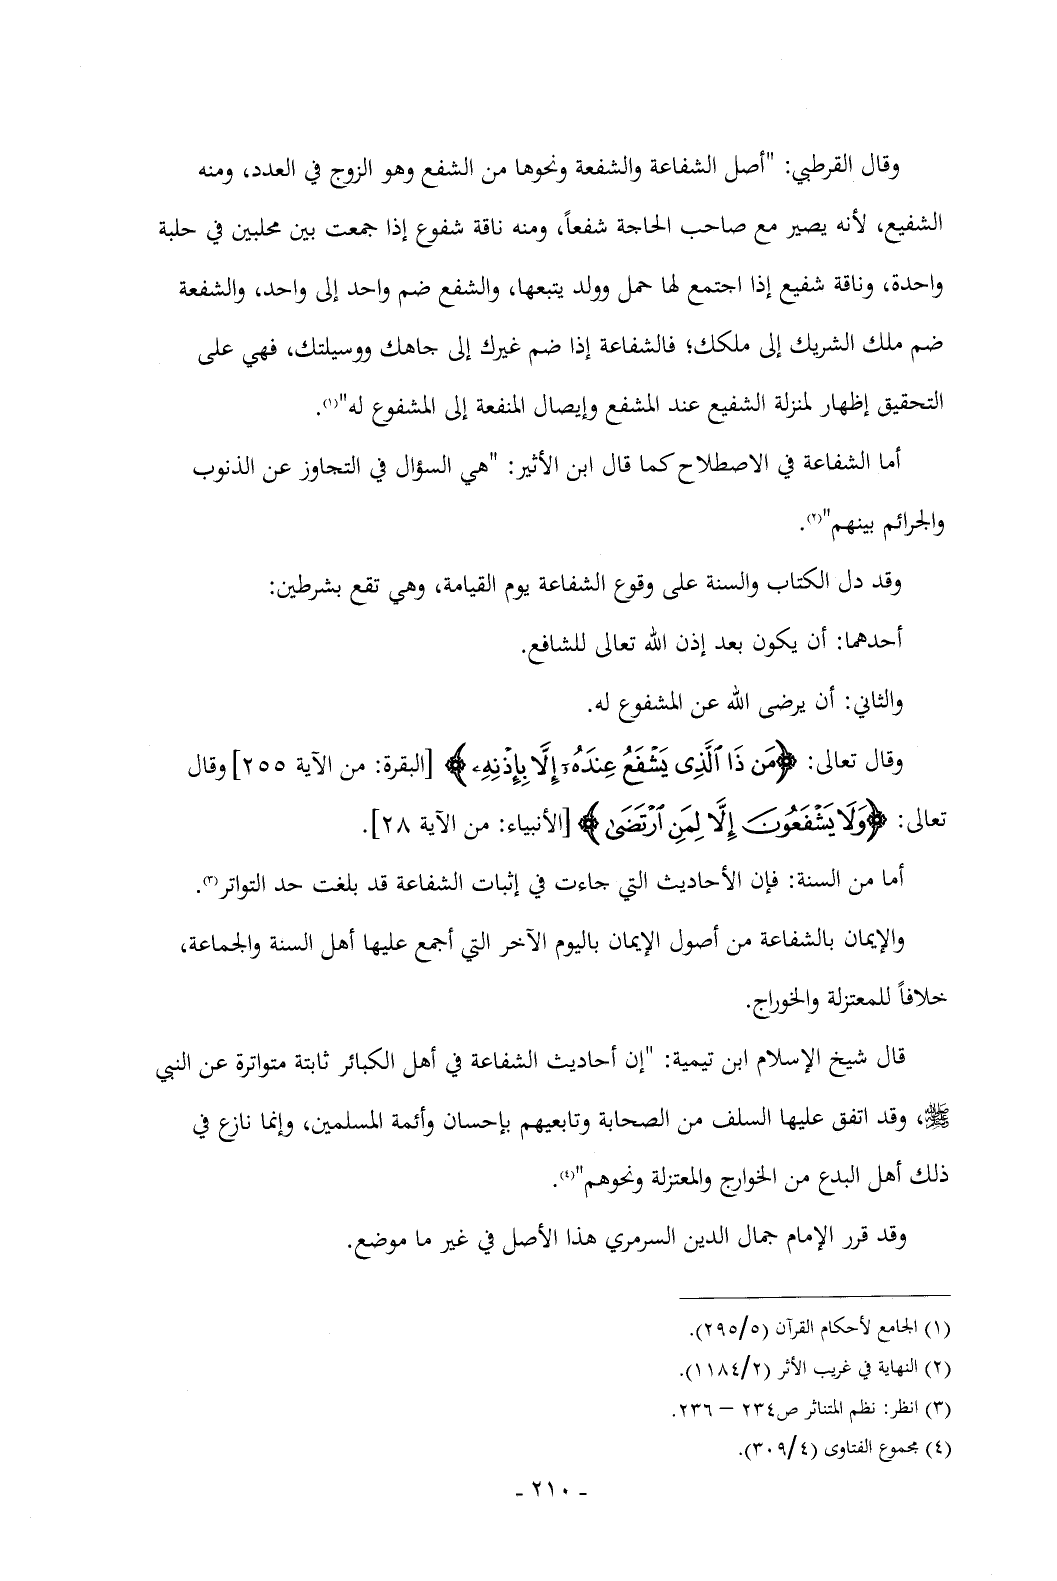 وقال القرطبي: "أصل الشفاعة والشفعة ونحوها من الشفع وهو الزوج في العدد، ومنه
الشفيع، لأنه يصير مع صاحب الحاجة شفعاً، ومنه ناقة شفوع إذا جمعت بين محلبين في حلبة
واحدة، وناقة شفيع إذا اجتمع لها حمل وولد يتبعها، والشفع ضم واحد إلى واحد، والشفعة
ضم ملك الشريك إلى ملكك؛ فالشفاعة إذا ضم غيرك إلى جاهك ووسيلتك، فهي على
التحقيق إظهار لمنزلة الشفيع عند المشفع وإيصال المنفعة إلى المشفوع له"(١).
أما الشفاعة في الاصطلاح كما قال ابن الأثير: "هي السؤال في التجاوز عن الذنوب
والجرائم بينهم"(٢).
وقد دل الكتاب والسنة على وقوع الشفاعة يوم القيامة، وهي تقع بشرطين:
أحدهما: أن يكون بعد إذن الله تعالى للشافع.
والثاني: أن يرضى الله عن المشفوع له.
وقال تعالى: ﴿مَن ذَا ٱلَّذِى يَشْفَعُ عِندَهُۥٓ إِلَّا بِإِذْنِهِۦ﴾ [البقرة: من الآية ٢٥٥] وقال
تعالى: ﴿وَلَا يَشْفَعُونَ إِلَّا لِمَنِ ٱرْتَضَىٰ﴾ [الأنبياء: من الآية ٢٨].
أما من السنة: فإن الأحاديث التي جاءت في إثبات الشفاعة قد بلغت حد التواتر(٣).
والإيمان بالشفاعة من أصول الإيمان باليوم الآخر التي أجمع عليها أهل السنة والجماعة،
خلافاً للمعتزلة والخوراج.
قال شيخ الإسلام ابن تيمية: "إن أحاديث الشفاعة في أهل الكبائر ثابتة متواترة عن النبي
ﷺ، وقد اتفق عليها السلف من الصحابة وتابعيهم بإحسان وأئمة المسلمين، وإنما نازع في
ذلك أهل البدع من الخوارج والمعتزلة ونحوهم"(٤).
وقد قرر الإمام جمال الدين السرمري هذا الأصل في غير ما موضع.
(١) الجامع لأحكام القرآن (٢٩٥/٥).
(٢) النهاية في غريب الأثر (١١٨٤/٢).
(٣) انظر: نظم المتناثر ص٢٣٤ – ٢٣٦.
(٤) مجموع الفتاوى (٣٠٩/٤).
- ٢١٠ -